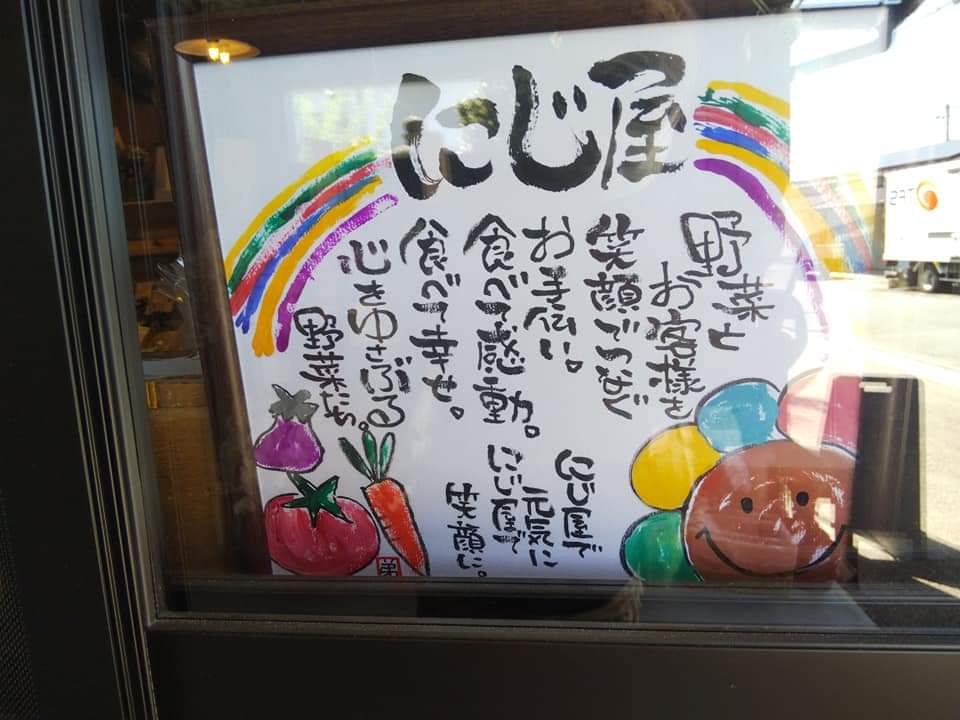 にじ屋
野菜と
お客様を
笑顔でつなぐ
お手伝い。
食べて感動。
食べて幸せ。
心をゆさぶる
野菜たち。
にじ屋で
元気に
にじ屋で
笑顔に。